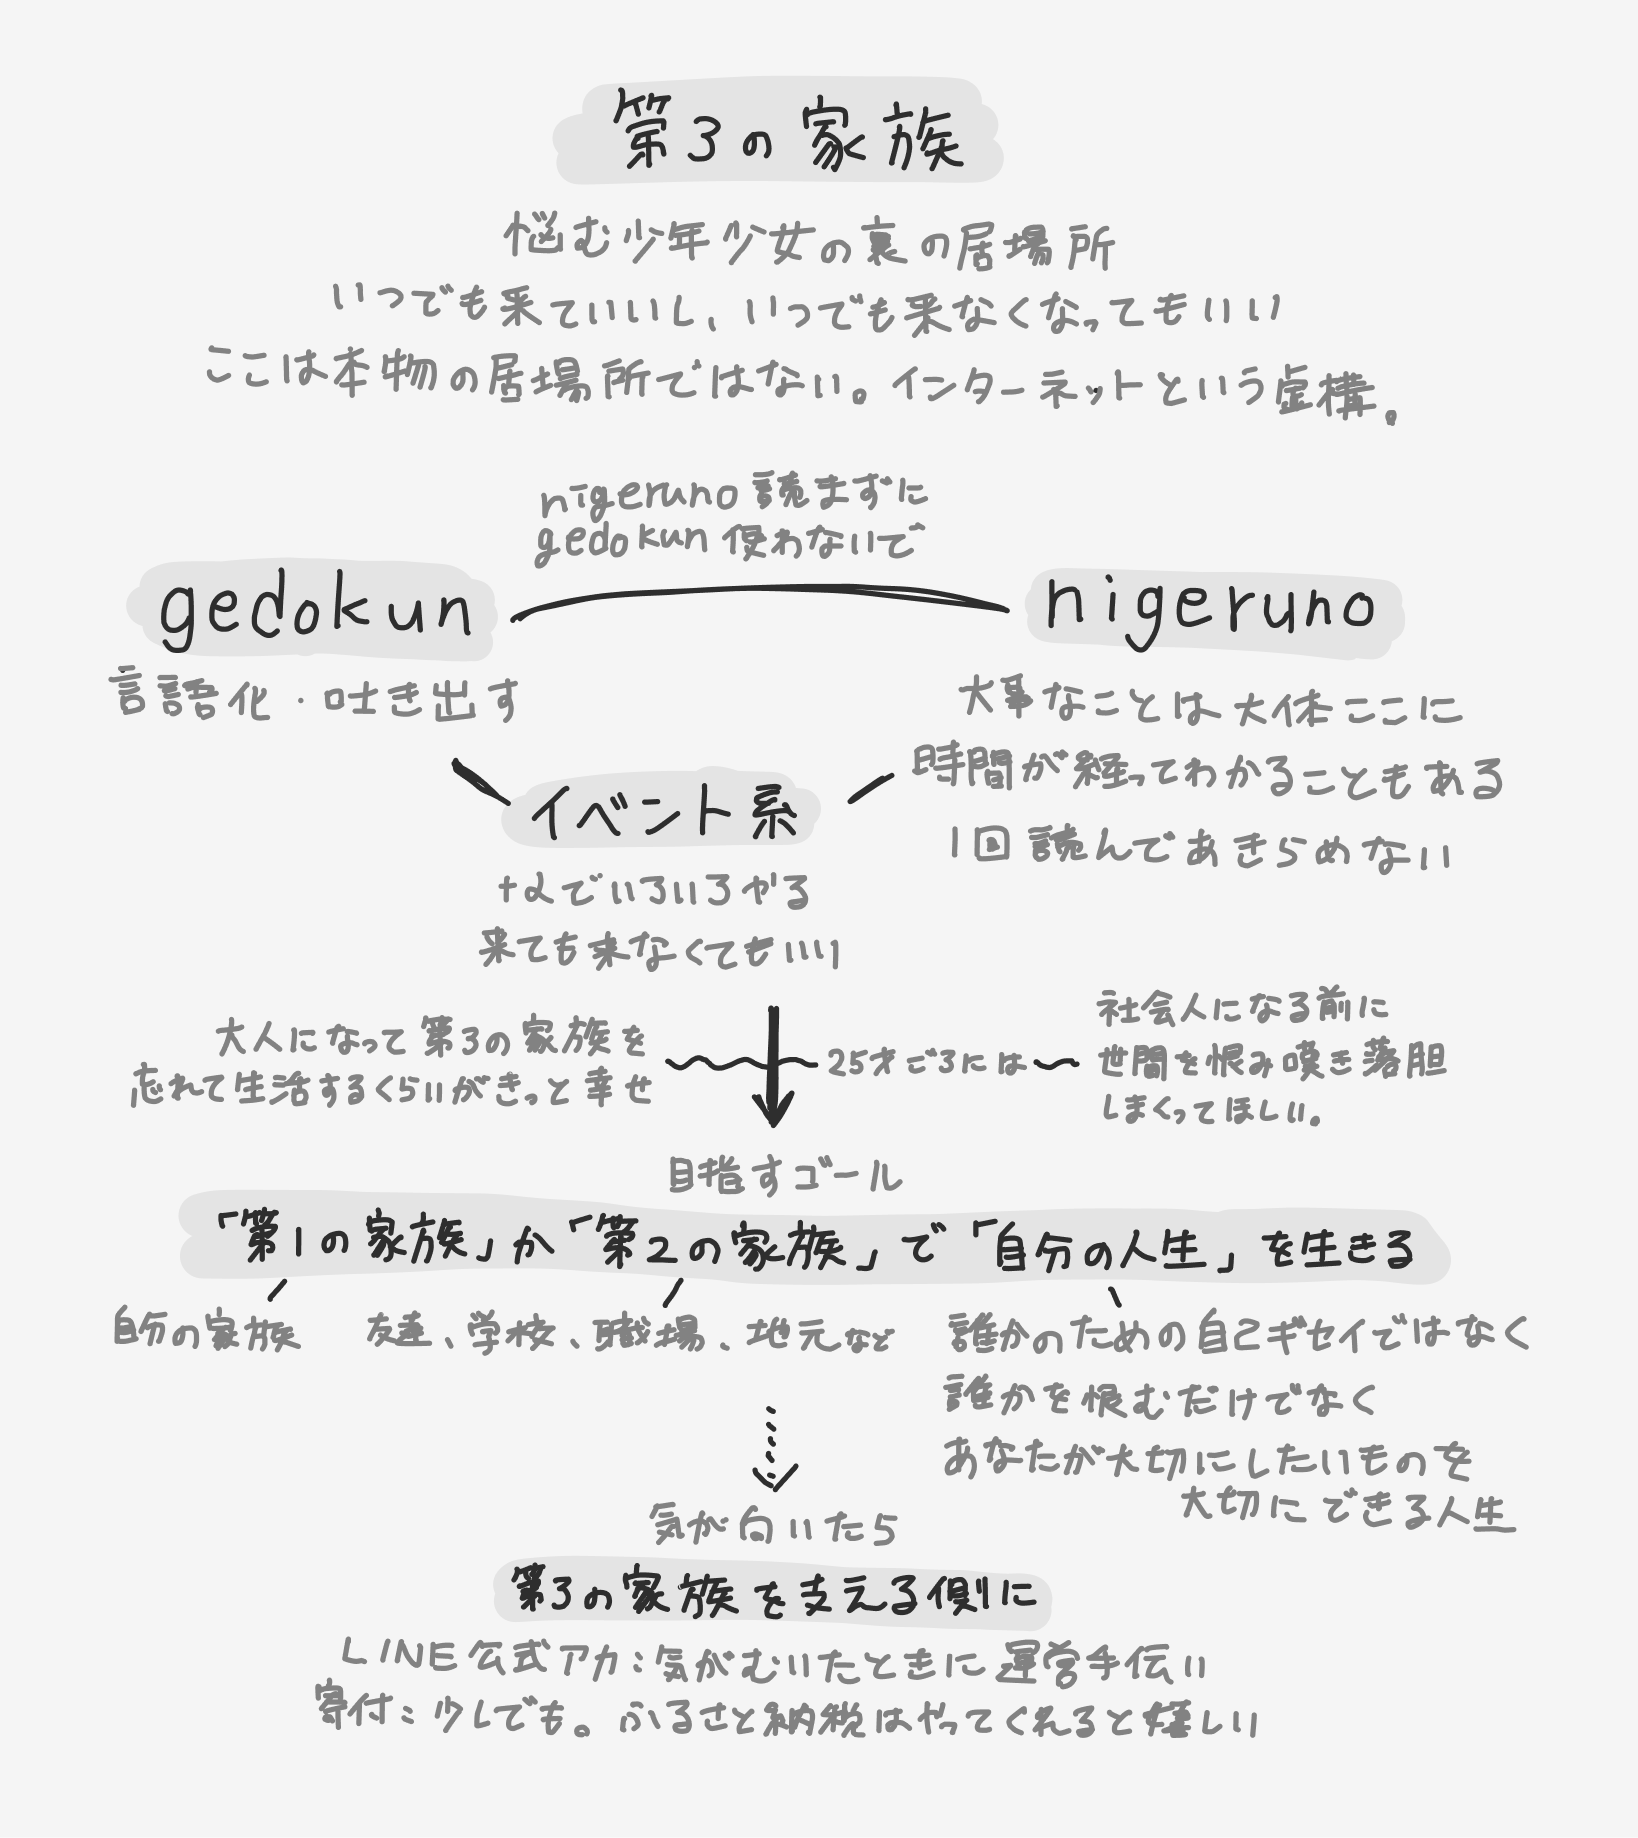 第3の家族
悩む少年少女の裏の居場所
いつでも来ていいし、いつでも来なくなってもいい
ここは本物の居場所ではない。インターネットという虚構。
nigeruno 読まずに
gedokun 使わないで
gedokun
言語化・吐き出す
nigeruno
大事なことは大体ここに
時間が経ってわかることもある
1回読んであきらめない
イベント系
なでいろいろやる
来ても来なくてもいい
大人になって第3の家族を
忘れて生活するくらいがきっと幸せ
25才ごろには
社会人になる前に
世間を恨み嘆き落胆
しまくってほしい。
目指すゴール
「第1の家族」か「第2の家族」で「自分の人生」を生きる
自分の家族
友達、学校、職場、地元など
誰かのための自己ギセイではなく
誰かを恨むだけでなく
あなたが大切にしたいものを
大切にできる人生
気が向いたら
第3の家族を支える側に
LINE公式アカ:気がむいたときに運営手伝い
寄付:少しでも。ふるさと納税はやってくれると嬉しい